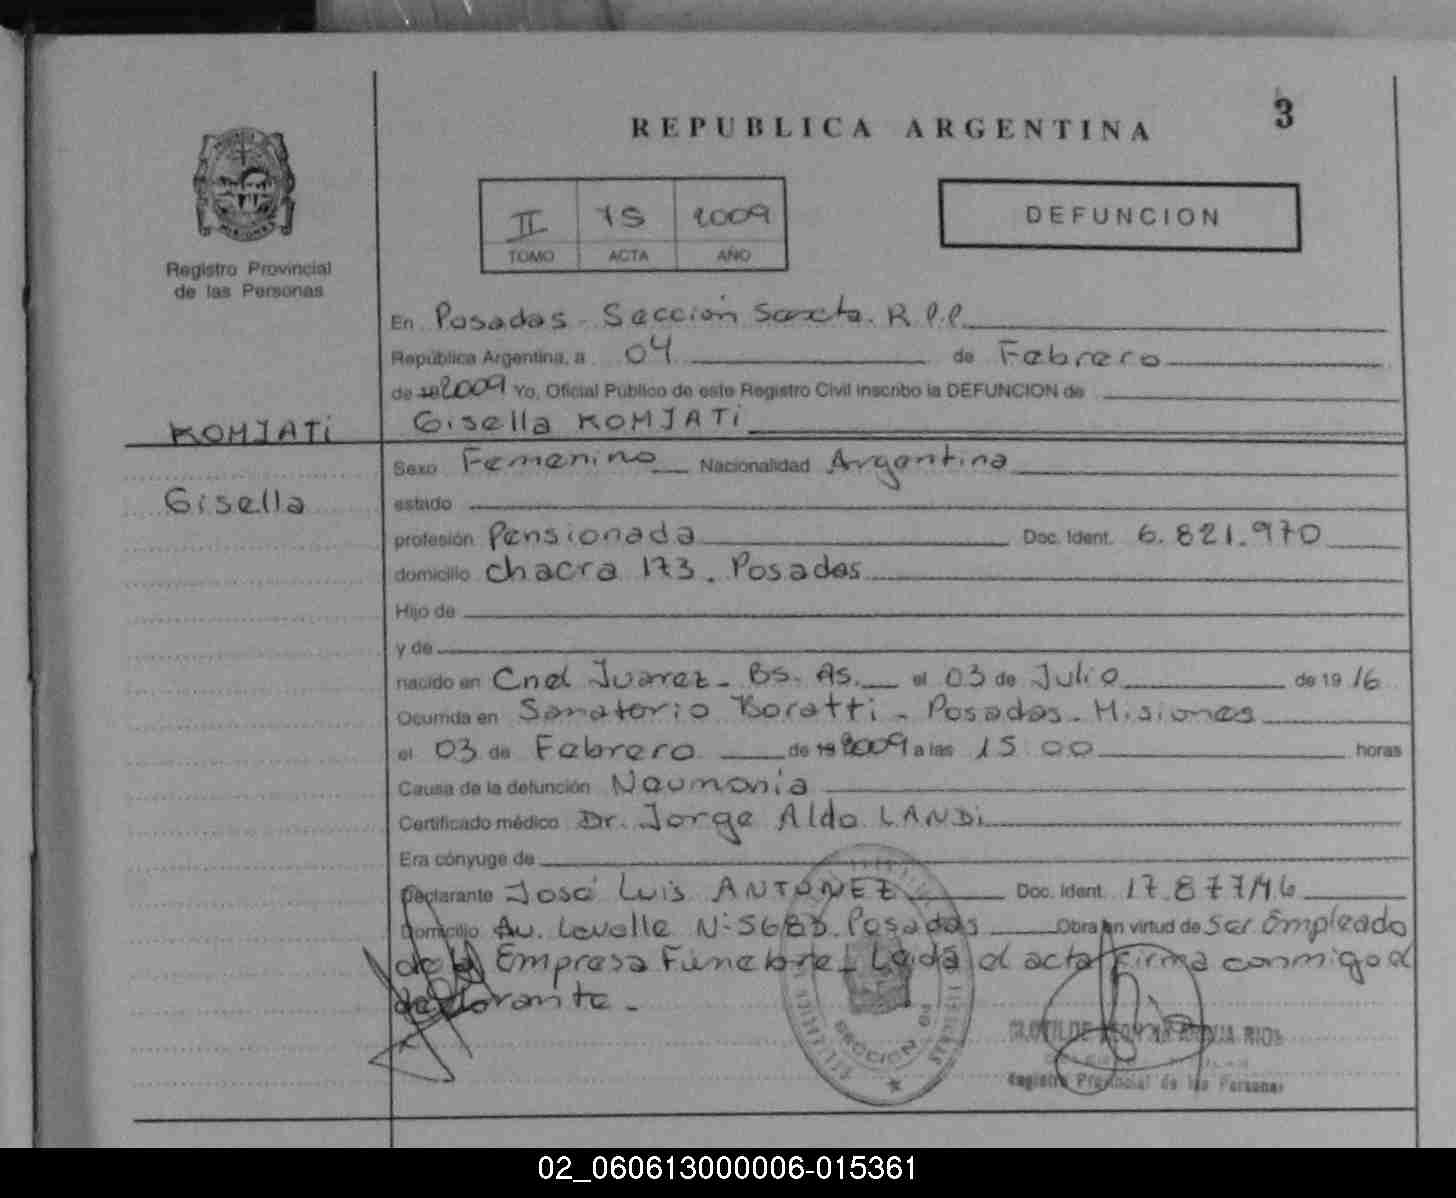 3
REPUBLICA ARGENTINA
II 75 2009
TOMO ACTA AÑO
DEFUNCION
MISIONES
Registro Provincial
de las Personas
En Posadas - Sección Sexta. R.P.P.
República Argentina, a 04 de Febrero
de 19 2009 Yo, Oficial Público de este Registro Civil inscribo la DEFUNCION de
KOMJATi Gisella KOMJATi
Sexo Femenino Nacionalidad Argentina
Gisella estado
profesión Pensionada Doc. Ident. 6.821.970
domicilio chacra 173. Posadas
Hijo de
y de
nacido en Cnel Juarez - BS. AS. el 03 de Julio de 19 16
Ocurrida en Sanatorio Boratti - Posadas - Misiones
el 03 de Febrero de 19 2009 a las 15:00 horas
Causa de la defunción Neumonía
Certificado médico Dr. Jorge Aldo LANDi
Era cónyuge de
Declarante José Luis ANTUNEZ Doc. Ident. 17.877.146
Domicilio Av. Lavalle N° 5683. Posadas Obra en virtud de Ser Empleado
de la Empresa Fúnebre. Leída el acta firma conmigo el
declarante.
SECCION
CLOTILDE RIOS
Registro Provincial de las Personas
02_060613000006-015361